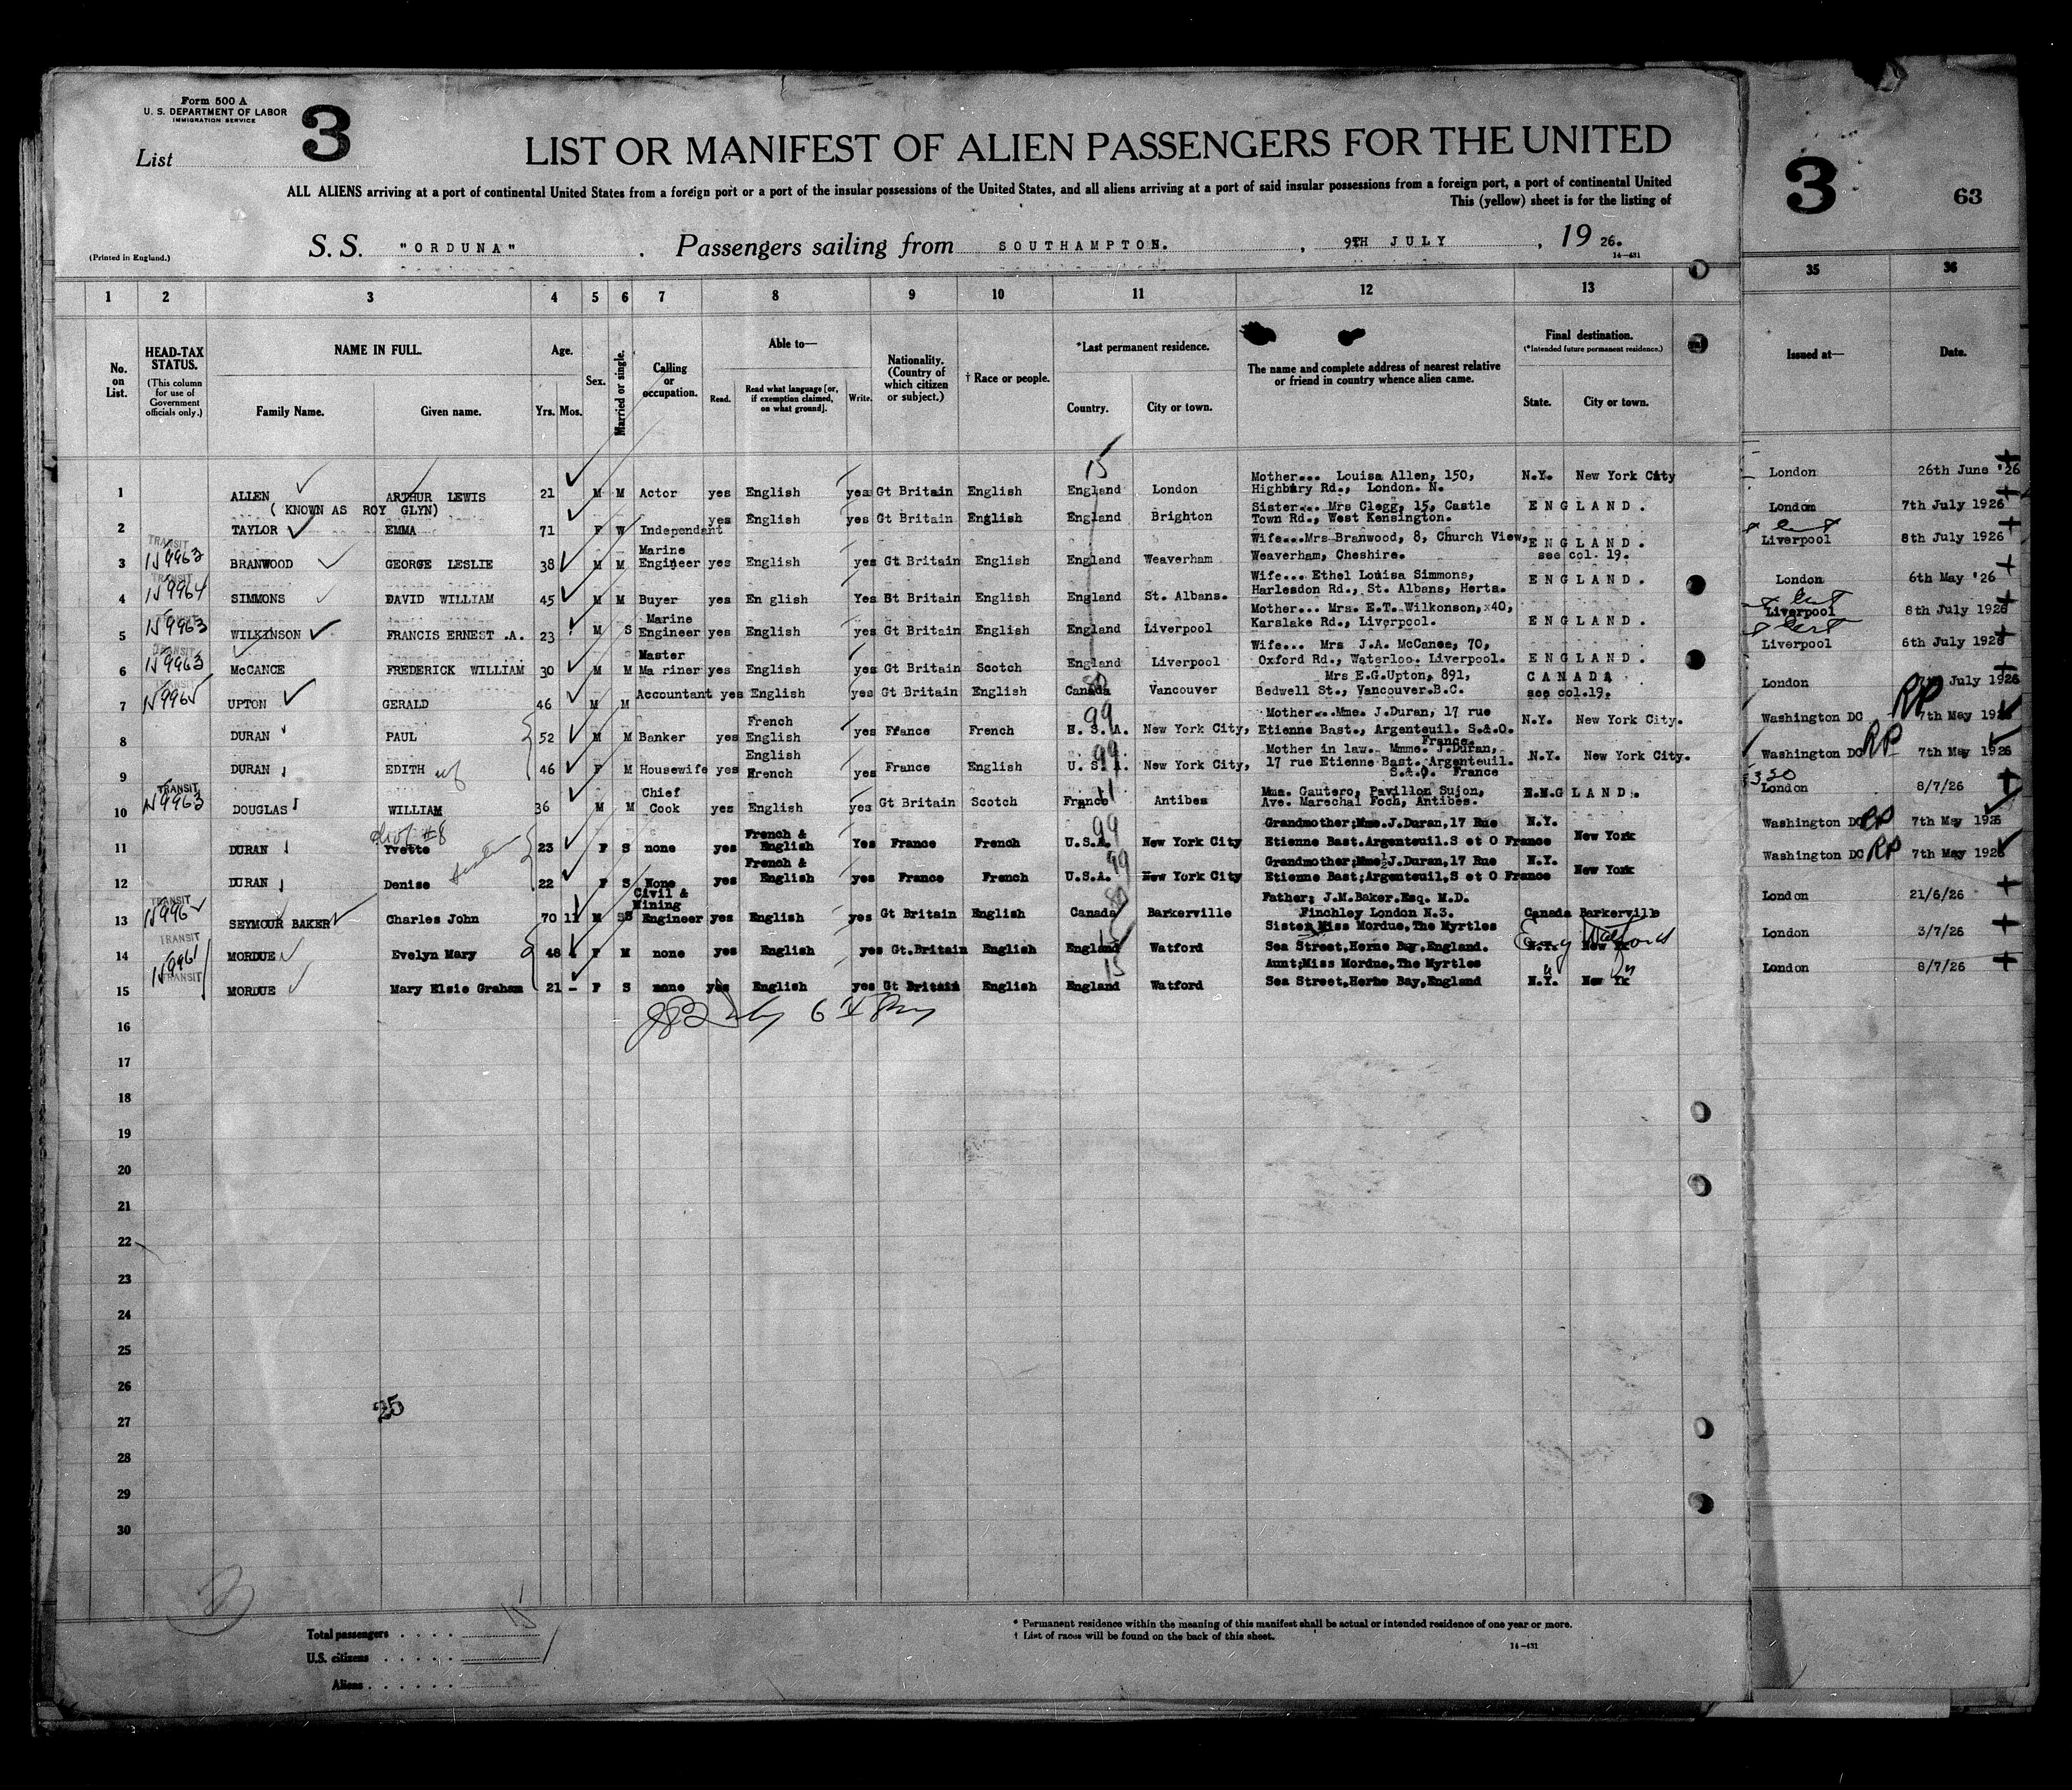 Form 500 A
U. S. DEPARTMENT OF LABOR
IMMIGRATION SERVICE
List 3
LIST OR MANIFEST OF ALIEN PASSENGERS FOR THE UNITED
ALL ALIENS arriving at a port of continental United States from a foreign port or a port of the insular possessions of the United States, and all aliens arriving at a port of said insular possessions from a foreign port, a port of continental United
This (yellow) sheet is for the listing of
3 63
(Printed in England.)
S. S. "ORDUNA" . Passengers sailing from SOUTHAMPTON. , 9TH JULY , 19 26.
14-431
1 2 3 4 5 6 7 8 9 10 11 12 13 35 36
No. on List.
HEAD-TAX STATUS.
(This column for use of Government officials only.)
NAME IN FULL.
Family Name. Given name.
Age.
Yrs. Mos.
Sex.
Married or single.
Calling or occupation.
Able to—
Read. Read what language [or, if exemption claimed, on what ground]. Write.
Nationality. (Country of which citizen or subject.)
† Race or people.
*Last permanent residence.
Country. City or town.
The name and complete address of nearest relative or friend in country whence alien came.
Final destination.
(*Intended future permanent residence.)
State. City or town.
Issued at— Date.
15
Mother... Louisa Allen, 150, N.Y. New York City London 26th June '26
1 ALLEN ARTHUR LEWIS 21 M M Actor yes English yes Gt Britain English England London Highbury Rd., London. N.
( KNOWN AS ROY GLYN)
Sister... Mrs Clegg, 15, Castle ENGLAND. London 7th July 1926
2 TAYLOR EMMA 71 F W Independant yes English yes Gt Britain English England Brighton Town Rd., West Kensington.
TRANSIT
Wife...Mrs Branwood, 8, Church View, ENGLAND. Liverpool 8th July 1926
3 BRANWOOD GEORGE LESLIE 38 M M Marine Engineer yes English yes Gt Britain English England Weaverham Weaverham, Cheshire. see col. 19.
TRANSIT
Wife... Ethel Louisa Simmons, ENGLAND. London 6th May '26
4 SIMMONS DAVID WILLIAM 45 M M Buyer yes En glish Yes Gt Britain English England St. Albans. Harlesdon Rd., St. Albans, Herts.
TRANSIT
Mother... Mrs. E.T. Wilkonson, 40, Liverpool 8th July 1926
5 WILKINSON FRANCIS ERNEST .A. 23 M S Marine Engineer yes English yes Gt Britain English England Liverpool Karslake Rd., Liverpool. ENGLAND.
TRANSIT
Wife... Mrs J.A. McCance, 70, Liverpool 6th July 1926
6 McCANCE FREDERICK WILLIAM 30 M M Master Ma riner yes English yes Gt Britain Scotch England Liverpool Oxford Rd., Waterloo. Liverpool. ENGLAND.
TRANSIT
Mrs E.G.Upton, 891, CANADA London July 1926
7 UPTON GERALD 46 M M Accountant yes English yes Gt Britain English Canada Vancouver Bedwell St., Vancouver.B.C. see col.19.
99
Mother...Mme. J.Duran, 17 rue N.Y. New York City. Washington DC RP 7th May 1926
8 DURAN PAUL 52 M M Banker yes French English yes France French U. S. A. New York City, Etienne Bast., Argenteuil. S.&.O. France.
99
Mother in law. Mmme. J.Duran, N.Y. New York City. Washington DC RP 7th May 1926
9 DURAN EDITH wf 46 F M Housewife yes English French yes France English U. S. A. New York City, 17 rue Etienne Bast. Argenteuil. S.&.O. France
TRANSIT
11
10 DOUGLAS WILLIAM 36 M M Chief Cook yes English yes Gt Britain Scotch France Antibes Mme. Gautero, Pavillon Sujon, Ave. Marechal Foch, Antibes. E.N.GLAND. London 8/7/26
99
Grandmother;Mme.J.Duran,17 Rue N.Y. Washington DC RP 7th May 1926
11 DURAN Yvette 23 F S none yes French & English Yes France French U.S.A. New York City Etienne Bast.Argenteuil.S et O France New York
99
Grandmother;Mme;J.Duran,17 Rue N.Y. Washington DC RP 7th May 1926
12 DURAN Denise 22 F S None yes French & English yes France French U.S.A. New York City Etienne Bast;Argenteuil,S et O France New York
TRANSIT
Father; J.M.Baker.Esq. M.D. London 21/6/26
13 SEYMOUR BAKER Charles John 70 11 M S Civil & Mining Engineer yes English yes Gt Britain English Canada Barkerville Finchley London N.3. Canada Barkerville
TRANSIT
Sister Miss Mordue, The Myrtles London 3/7/26
14 MORDUE Evelyn Mary 48 F M none yes English yes Gt.Britain English England Watford Sea Street,Herne Bay,England. N.Y. New Eng Watford
TRANSIT
15
Aunt;Miss Mordue,The Myrtles London 8/7/26
15 MORDUE Mary Elsie Graham 21 - F S none yes English yes Gt Britain English England Watford Sea Street,Herne Bay,England N.Y. New Yk
16
17
18
19
20
21
22
23
24
25
26
25
27
28
29
30
Total passengers . . . . 15
U.S. citizens . . . . .
Aliens . . . . . .
* Permanent residence within the meaning of this manifest shall be actual or intended residence of one year or more.
† List of races will be found on the back of this sheet.
14-431